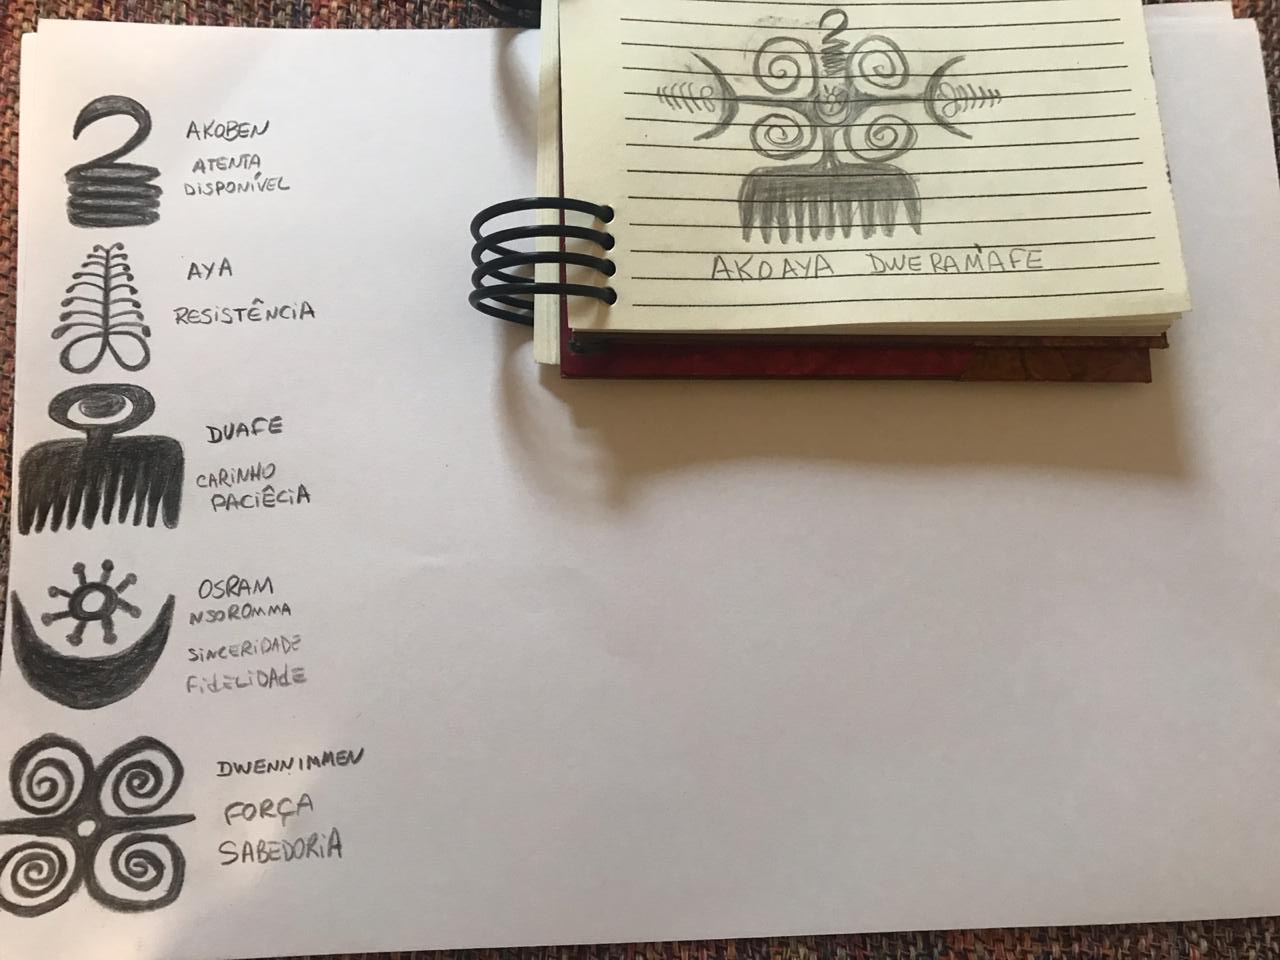 AKOBEN
ATENTA
DISPONÍVEL
AYA
RESISTÊNCIA
DUAFE
CARINHO
PACIÊCIA
OSRAM
NSOROMMA
SINCERIDADE
FIDELIDADE
DWENNIMMEN
FORÇA
SABEDORIA
AKOAYA DWERAM'AFE